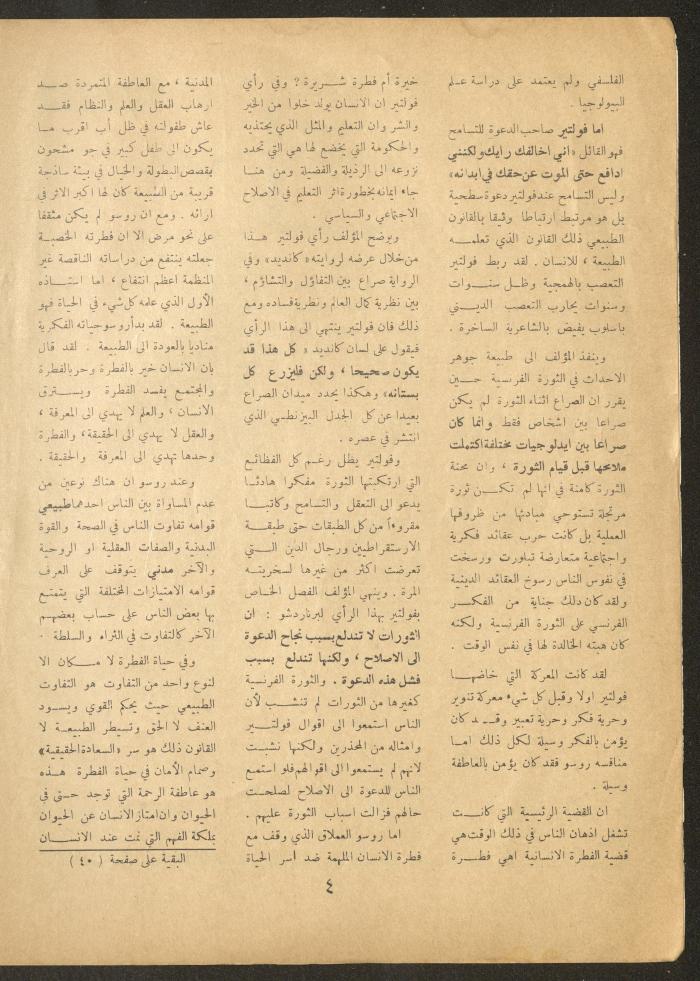 الفلسفي ولم يعتمد على دراسة علم
البيولوجيا .
اما فولتير صاحب الدعوة للتسامح
فهو القائل «اني اخالفك رايك ولكنني
ادافع حتى الموت عن حقك في ابدائه»
وليس التسامح عند فولتير دعوة سطحية
بل هو مرتبط ارتباطا وثيقا بالقانون
الطبيعي ذلك القانون الذي تعلمـه
الطبيعة ، للانسان . لقد ربط فولتير
التعصب بالهمجية وظـل سنـوات
وسنوات يحارب التعصب الديـني
باسلوب يفيض بالشاعرية الساخرة .
وينفذ المؤلف الى طبيعة جوهر
الاحداث في الثورة الفرنسية حـين
يقرر ان الصراع اثناء الثورة لم يكن
صراعا بين اشخاص فقط وانما كان
صراعا بين ايدلوجيات مختلفة اكتملت
ملامحها قبل قيام الثورة ، وان محنة
الثورة كامنة في انها لم تكـن ثورة
مرتجلة تستوحي مبادئها من ظروفها
العملية بل كانت حرب عقائد فكرية
واجتماعية متعارضة تبلورت ورسخت
في نفوس الناس رسوخ العقائد الدينية
ولقد كان ذلك جناية من الفكـر
الفرنسي على الثورة الفرنسية ولكنه
كان هبته الخالدة لها في نفس الوقت .
لقد كانت المعركة التي خاضهـا
فولتير اولا وقبل كل شيء معركة تنوير
وحرية فكر وحرية تعبير وقـد كان
يؤمن بالفكر وسيلة لكل ذلك امـا
منافسه روسو فقد كان يؤمن بالعاطفة
وسيلة .
ان القضية الرئيسية التي كانـت
تشغل اذهان الناس في ذلك الوقت هي
قضية الفطرة الانسانية اهي فطـرة
خيرة أم فطرة شـريرة ؟ وفي رأي
فولتير ان الانسان يولد خلوا من الخير
والشر وان التعليم والمثل الذي يحتذيه
والحكومة التي يخضع لها هي التي تحدد
نزوعه الى الرذيلة والفضيلة ومن هنـا
جاء ايمانه بخطورة اثر التعليم في الاصلاح
الاجتماعي والسياسي .
ويوضح المؤلف رأي فولتير هـذا
من خلال عرضه لروايته «كانديد» وفي
الرواية صراع بين التفاؤل والتشاؤم ،
بين نظرية كمال العالم ونظرية فساده ومع
ذلك فان فولتير ينتهي الى هذا الرأي
فيقول على لسان كانديد « كل هذا قد
يكون صحيحا ، ولكن فليزرع كل
بستانه» وهكذا يحدد ميدان الصراع
بعيدا عن كل الجدل البيزنطي الذي
انتشر في عصره .
وفولتير يظل رغـم كل الفظائـع
التي ارتكبتها الثورة مفكرا هادئـا
يدعو الى التعقل والتسامح وكاتبـا
مقروءاً من كل الطبقات حتى طبقـة
الارستقراطيين ورجال الدين الـتي
تعرضت اكثر من غيرها لسخريتـه
المرة . وينهي المؤلف الفصل الخـاص
بفولتير بهذا الرأي لبرناردشو : ان
الثورات لا تندلع بسبب نجاح الدعوة
الى الاصلاح ، ولكنها تندلع بسبب
فشل هذه الدعوة . والثورة الفرنسية
كغيرها من الثورات لم تنشـب لأن
الناس استمعوا الى اقوال فولتـير
وامثاله من المحذرين ولكنها نشبت
لانهم لم يستمعوا الى اقوالهم فلو استمع
الناس للدعوة الى الاصلاح لصلحـت
حالهم فزالت اسباب الثورة عليهم .
اما روسو العملاق الذي وقف مع
فطرة الانسان الملهمة ضد اسر الحياة
المدنية ، مع العاطفة المتمردة ضـد
ارهاب العقل والعلم والنظام فقـد
عاش طفولته في ظل أب اقرب مـا
يكون الى طفل كبير في جو مشحون
بقصص البطولة والخيال في بيئة ساذجة
قريبة من الطبيعة كان لها اكبر الاثر في
ارائه . ومع ان روسو لم يكن مثقفا
على نحو مرض الا ان فطرته الخصبـة
جعلته ينتفع من دراساته الناقصة غير
المنظمة اعظم انتفاع ، اما استـاذه
الأول الذي علمه كل شيء في الحياة فهو
الطبيعة . لقد بدأ روسو حياته الفكرية
مناديا بالعودة الى الطبيعة . لقد قال
بان الانسان خير بالفطرة وحر بالفطرة
والمجتمع يفسد الفطرة ويستـرق
الانسان ، والعلم لا يهدي الى المعرفة ،
والعقل لا يهدي الى الحقيقة، والفطرة
وحدها تهدي الى المعرفة والحقيقة .
وعند روسو ان هناك نوعين من
عدم المساواة بين الناس احدهما طبيعي
قوامه تفاوت الناس في الصحة والقوة
البدنية والصفات العقلية او الروحية
والآخر مدني يتوقف على العرف
قوامه الامتيازات المختلفة التي يتمتـع
بها بعض الناس على حساب بعضهـم
الآخر كالتفاوت في الثراء والسلطة .
وفي حياة الفطرة لا مـكان الا
لنوع واحد من التفاوت هو التفاوت
الطبيعي حيث يحكم القوي ويسـود
العنف لا الحق وتسيطر الطبيعـة لا
القانون ذلك هو سر «السعادة الحقيقية»
وصمام الأمان في حياة الفطرة هـذه
هو عاطفة الرحمة التي توجد حـتى في
الحيوان وان امتاز الانسان عن الحيوان
بملكة الفهم التي نمت عند الانسـان
البقية على صفحة ( ٤٠ )
٤